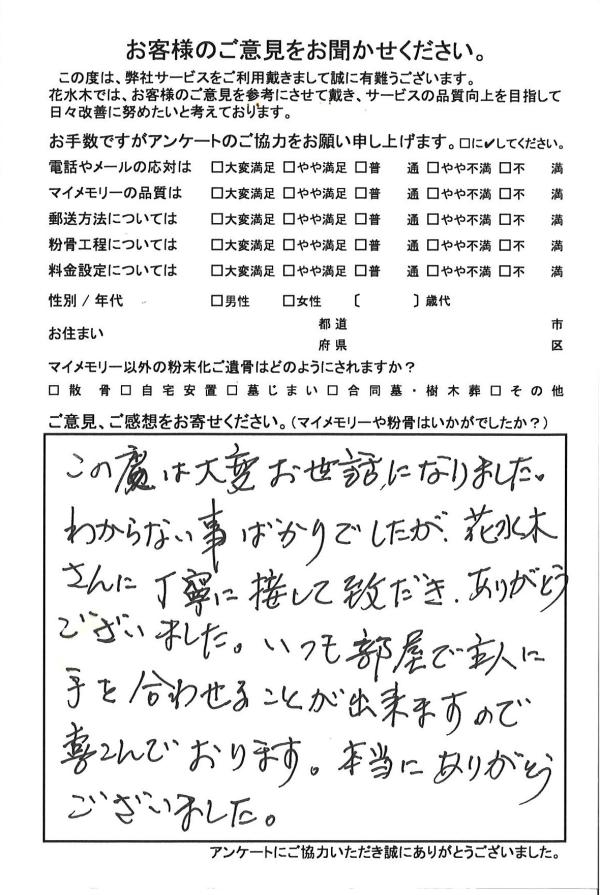 お客様のご意見をお聞かせください。
この度は、弊社サービスをご利用戴きまして誠に有難うございます。
花水木では、お客様のご意見を参考にさせて戴き、サービスの品質向上を目指して
日々改善に努めたいと考えております。
お手数ですがアンケートのご協力をお願い申し上げます。□に✔してください。
電話やメールの応対は □大変満足 □やや満足 □普 通 □やや不満 □不 満
マイメモリーの品質は □大変満足 □やや満足 □普 通 □やや不満 □不 満
郵送方法については □大変満足 □やや満足 □普 通 □やや不満 □不 満
粉骨工程については □大変満足 □やや満足 □普 通 □やや不満 □不 満
料金設定については □大変満足 □やや満足 □普 通 □やや不満 □不 満
性別 / 年代 □男性 □女性 〔 〕歳代
お住まい 都道 市
府県 区
マイメモリー以外の粉末化ご遺骨はどのようにされますか？
□散 骨 □自宅安置 □墓じまい □合同墓・樹木葬 □その他
ご意見、ご感想をお寄せください。(マイメモリーや粉骨はいかがでしたか？)
この度は大変お世話になりました。
わからない事ばかりでしたが、花水木
さんに丁寧に接して致だき、ありがとう
ございました。いつも部屋で主人に
手を合わせることが出来ますので
喜こんでおります。本当にありがとう
ございました。
アンケートにご協力いただき誠にありがとうございました。